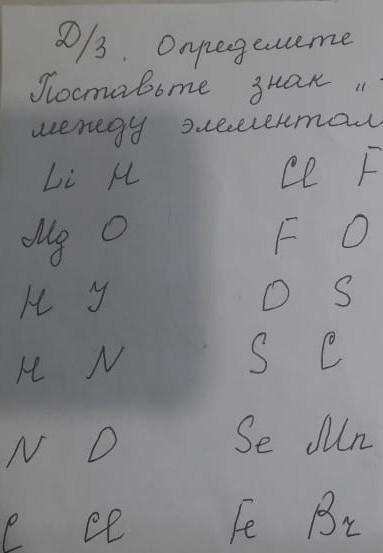 Д/З. Определите
Поставьте знак „
между элементам
Li H Cl F
Mg O F O
H J O S
H N S C
N O Se Mn
C Cl Fe Br